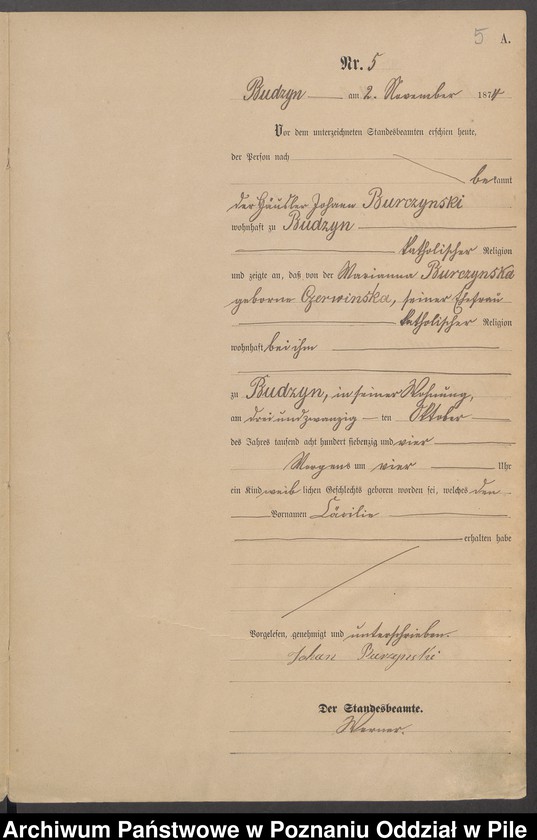 5 A.
Nr. 5
Budzyn am 2. November 1874
Vor dem unterzeichneten Standesbeamten erschien heute,
der Person nach
bekannt
der Häusler Johann Burczynski
wohnhaft zu Budzyn
katholischer Religion
und zeigte an, daß von der Marianna Burczynska
geborne Czerwinska, seiner Ehefrau
katholischer Religion
wohnhaft bei ihm
zu Budzyn, in seiner Wohnung,
am drei und zwanzig ten Oktober
des Jahres tausend acht hundert siebenzig und vier
Morgens um vier Uhr
ein Kind weiblichen Geschlechts geboren worden sei, welches den
Vornamen Cäcilie
erhalten habe
Vorgelesen, genehmigt und unterschrieben.
Johan Burzynski
Der Standesbeamte.
Werner.
Archiwum Państwowe w Poznaniu Oddział w Pile